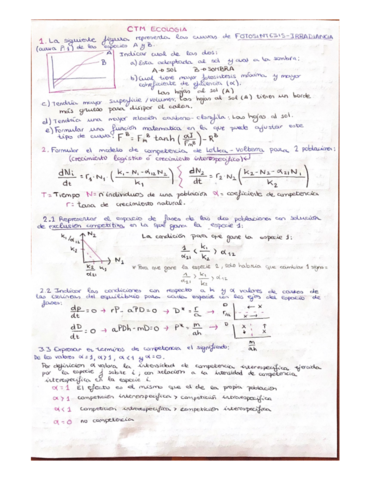 CTM ECOLOGIA
1. La siguiente figura representa las curvas de FOTOSÍNTESIS-IRRADIANCIA
(curva P-I) de las especies A y B.
Indicar cual de las dos:
a) Esta adaptada al sol y cual a la sombra:
A → SOL B → SOMBRA
b) Cual tiene mayor pendiente máxima y mayor
coeficiente de eficiencia (α).
Las hojas al sol (A)
c) Tendría mayor superficie/volumen. Las hojas al sol (A) tienen un borde
más grueso para disipar el calor.
d) Tendría una mayor relación carbono-clorofila: Las hojas al sol.
e) Formular una función matemática en la que puede ajustar este
tipo de curvas:
2. Formular el modelo de competencia de Lotka-Volterra para 2 poblaciones:
(crecimiento logístico o crecimiento interespecífico)
T = Tiempo N = nº individuos de una población α = coeficiente de competencia
r = tasa de crecimiento natural.
2.1 Representar el espacio de fases de las dos poblaciones en solución
de exclusión competitiva en la que gana la especie 1:
La condición para que gane la especie 1:
* Para que gane la especie 2, solo habría que cambiar el signo.
2.2 Indicar las condiciones con respecto a h y α valores de cortes de
las isoclinas del equilibrio para cada especie en los ejes del espacio de
fases:
3.3 Expresar en términos de competencia el significado:
De los valores α=1, α>1, α<1 y α=0.
Por definición α valora la intensidad de competencia interespecífica ejercida
por la especie j sobre i, en relación a la intensidad de competencia
intraespecífica en la especie i
α=1 El efecto es el mismo que el de la propia población
α>1 competición interespecífica > competición intraespecífica
α<1 competición intraespecífica > competición interespecífica
α=0 no competición